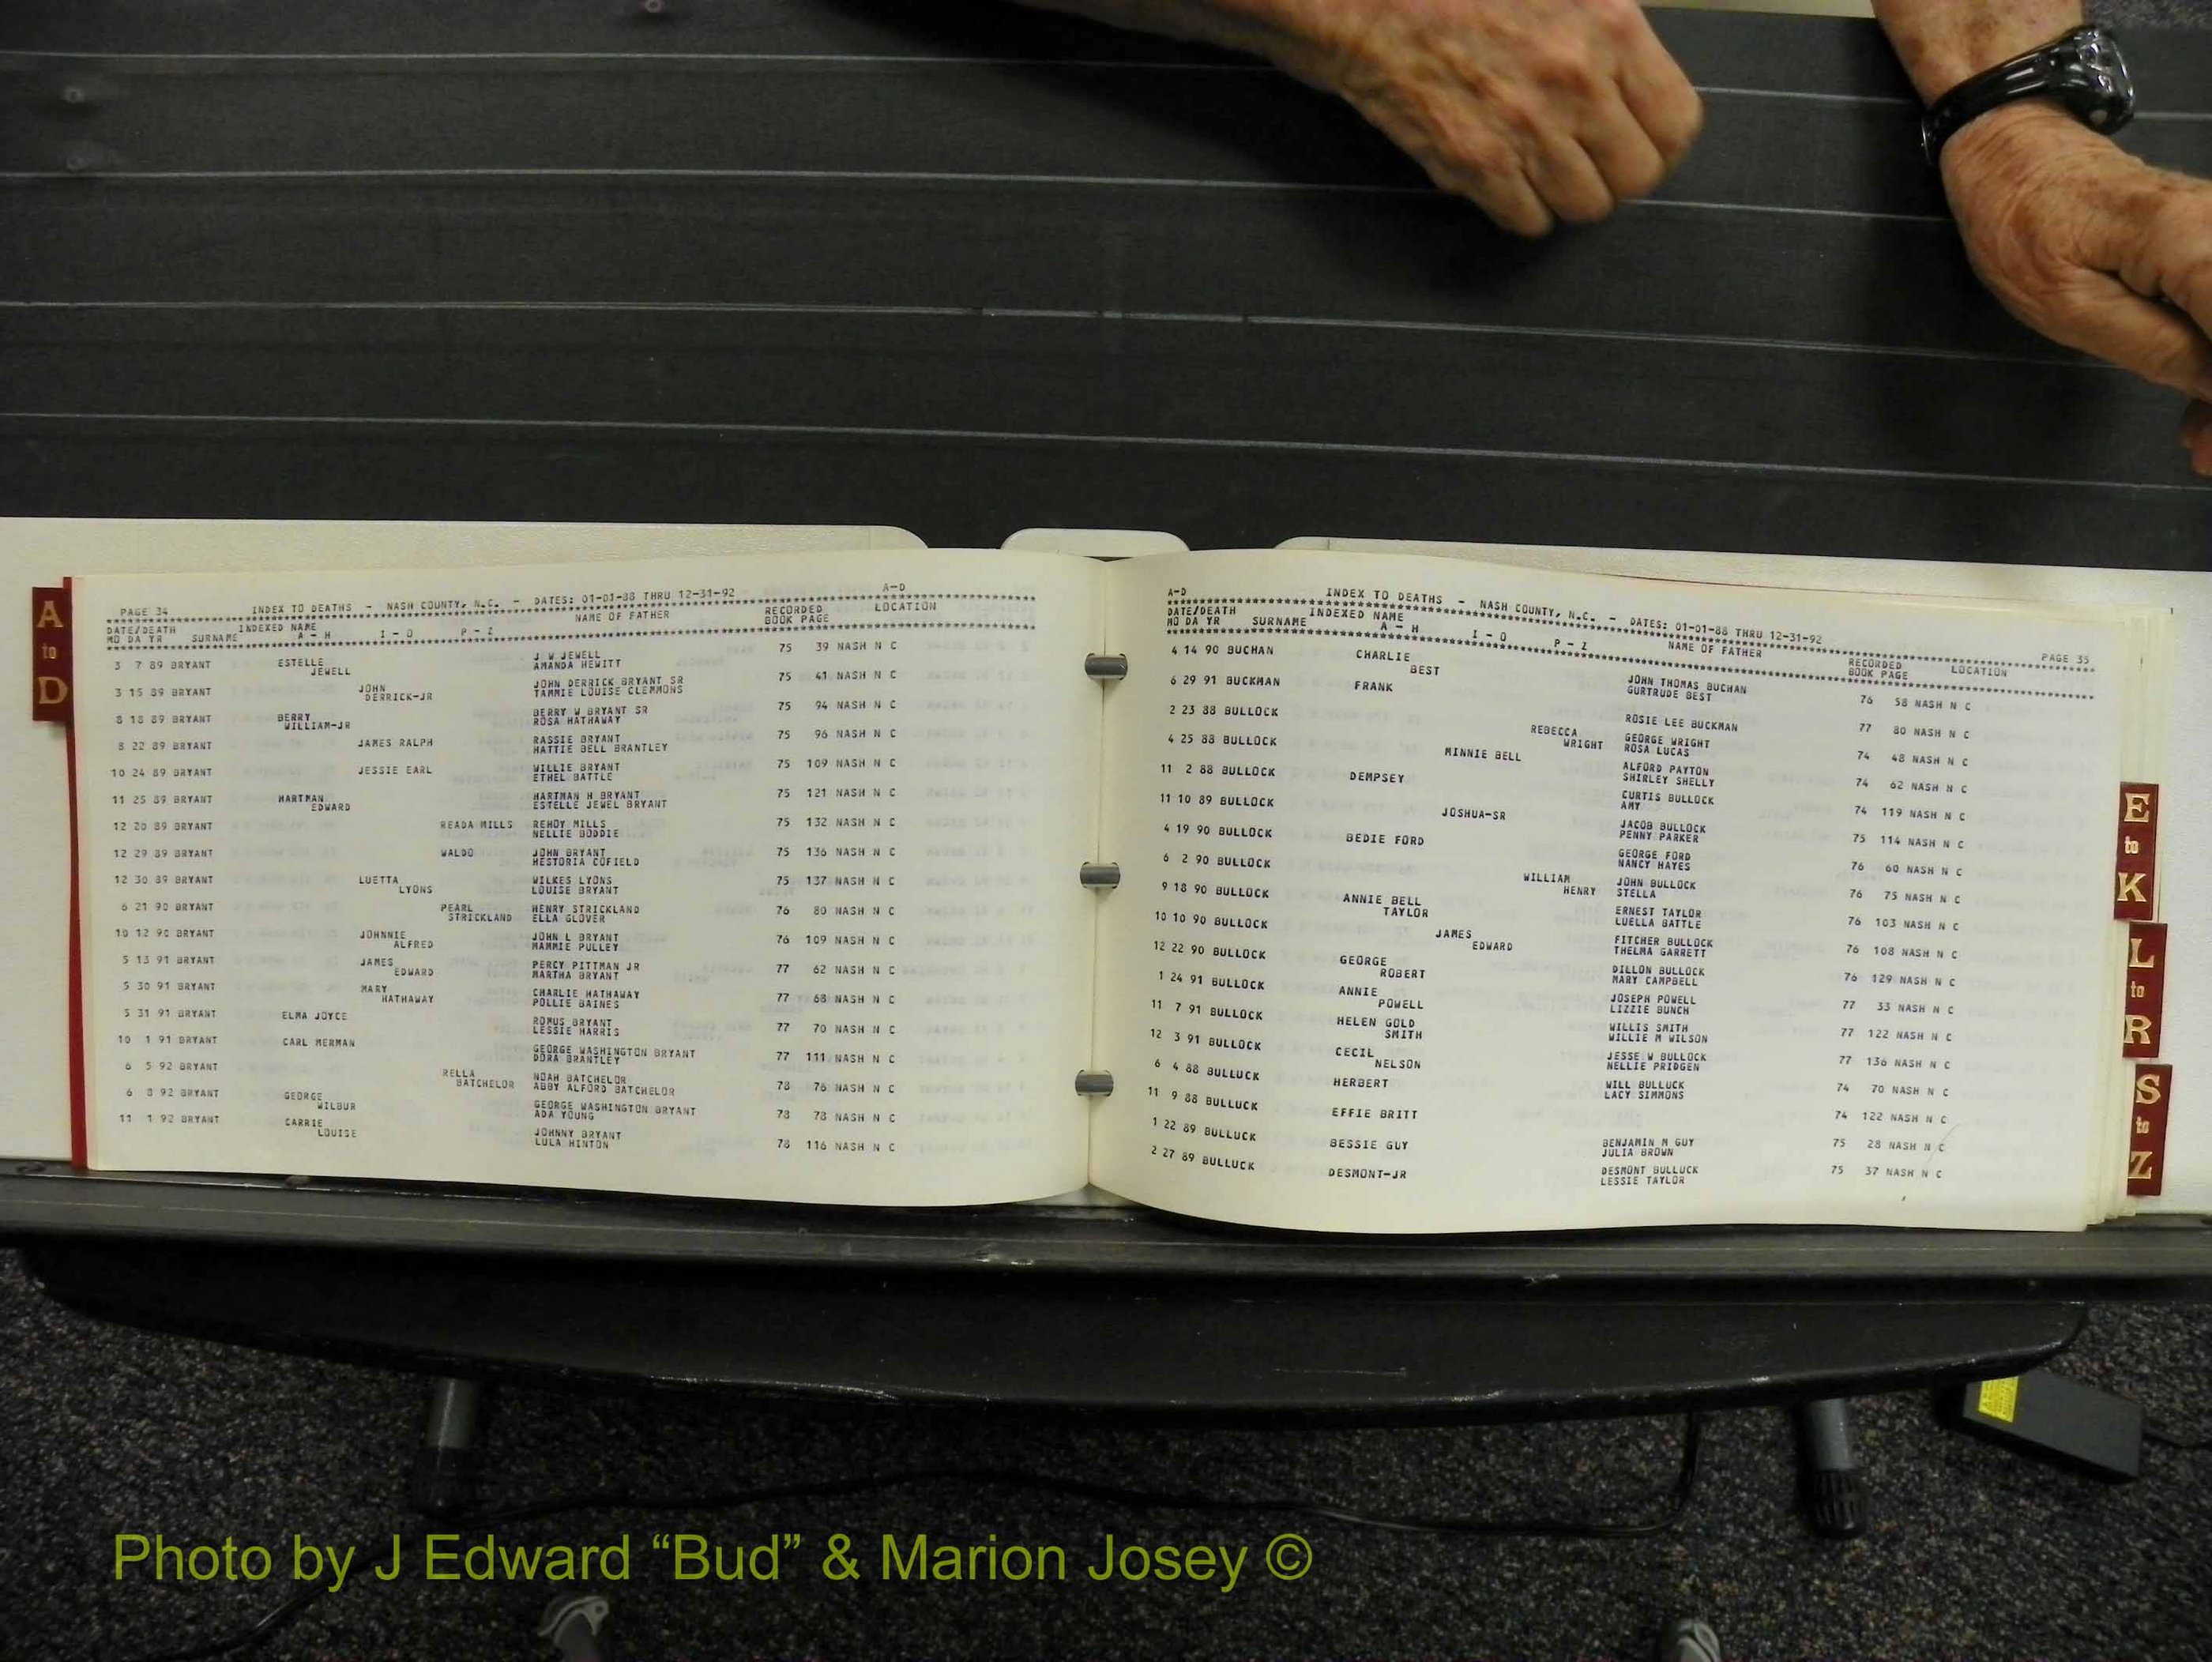 A
to
D
PAGE 34 INDEX TO DEATHS - NASH COUNTY, N.C. - DATES: 01-01-88 THRU 12-31-92 A-D
DATE/DEATH INDEXED NAME NAME OF FATHER RECORDED LOCATION
MO DA YR SURNAME A - H I - O P - Z BOOK PAGE
3 7 89 BRYANT ESTELLE J W JEWELL 75 39 NASH N C
JEWELL AMANDA HEWITT
3 15 89 BRYANT JOHN JOHN DERRICK BRYANT SR 75 41 NASH N C
DERRICK-JR TAMMIE LOUISE CLEMMONS
8 18 89 BRYANT BERRY BERRY W BRYANT SR 75 94 NASH N C
WILLIAM-JR ROSA HATHAWAY
8 22 89 BRYANT JAMES RALPH RASSIE BRYANT 75 96 NASH N C
HATTIE BELL BRANTLEY
10 24 89 BRYANT JESSIE EARL WILLIE BRYANT 75 109 NASH N C
ETHEL BATTLE
11 25 89 BRYANT HARTMAN HARTMAN H BRYANT 75 121 NASH N C
EDWARD ESTELLE JEWEL BRYANT
12 20 89 BRYANT READA MILLS REHOY MILLS 75 132 NASH N C
NELLIE BODDIE
12 29 89 BRYANT WALDO JOHN BRYANT 75 136 NASH N C
HESTORIA COFIELD
12 30 89 BRYANT LUETTA WILKES LYONS 75 137 NASH N C
LYONS LOUISE BRYANT
6 21 90 BRYANT PEARL HENRY STRICKLAND 76 80 NASH N C
STRICKLAND ELLA GLOVER
10 12 90 BRYANT JOHNNIE JOHN L BRYANT 76 109 NASH N C
ALFRED MAMMIE PULLEY
5 13 91 BRYANT JAMES PERCY PITTMAN JR 77 62 NASH N C
EDWARD MARTHA BRYANT
5 30 91 BRYANT MARY CHARLIE HATHAWAY 77 68 NASH N C
HATHAWAY POLLIE BAINES
5 31 91 BRYANT ELMA JOYCE ROMUS BRYANT 77 70 NASH N C
LESSIE HARRIS
10 1 91 BRYANT CARL HERMAN GEORGE WASHINGTON BRYANT 77 111 NASH N C
DORA BRANTLEY
6 5 92 BRYANT RELLA NOAH BATCHELOR 78 76 NASH N C
BATCHELOR ABBY ALFORD BATCHELOR
6 8 92 BRYANT GEORGE GEORGE WASHINGTON BRYANT 78 78 NASH N C
WILBUR ADA YOUNG
11 1 92 BRYANT CARRIE JOHNNY BRYANT 78 116 NASH N C
LOUISE LULA HINTON
A-D INDEX TO DEATHS - NASH COUNTY, N.C. - DATES: 01-01-88 THRU 12-31-92 PAGE 35
DATE/DEATH INDEXED NAME NAME OF FATHER RECORDED LOCATION
MO DA YR SURNAME A - H I - O P - Z BOOK PAGE
4 14 90 BUCHAN CHARLIE JOHN THOMAS BUCHAN 76 58 NASH N C
BEST GURTRUDE BEST
6 29 91 BUCKMAN FRANK ROSIE LEE BUCKMAN 77 80 NASH N C
2 23 88 BULLOCK REBECCA GEORGE WRIGHT 74 48 NASH N C
WRIGHT ROSA LUCAS
4 25 88 BULLOCK MINNIE BELL ALFORD PAYTON 74 62 NASH N C
SHIRLEY SHELLY
11 2 88 BULLOCK DEMPSEY CURTIS BULLOCK 74 119 NASH N C
AMY
11 10 89 BULLOCK JOSHUA-SR JACOB BULLOCK 75 114 NASH N C
PENNY PARKER
4 19 90 BULLOCK BEDIE FORD GEORGE FORD 76 60 NASH N C
NANCY HAYES
6 2 90 BULLOCK WILLIAM JOHN BULLOCK 76 75 NASH N C
HENRY STELLA
9 18 90 BULLOCK ANNIE BELL ERNEST TAYLOR 76 103 NASH N C
TAYLOR LUELLA BATTLE
10 10 90 BULLOCK JAMES FITCHER BULLOCK 76 108 NASH N C
EDWARD THELMA GARRETT
12 22 90 BULLOCK GEORGE DILLON BULLOCK 76 129 NASH N C
ROBERT MARY CAMPBELL
1 24 91 BULLOCK ANNIE JOSEPH POWELL 77 33 NASH N C
POWELL LIZZIE BUNCH
11 7 91 BULLOCK HELEN GOLD WILLIS SMITH 77 122 NASH N C
SMITH WILLIE M WILSON
12 3 91 BULLOCK CECIL JESSE W BULLOCK 77 136 NASH N C
NELSON NELLIE PRIDGEN
6 4 88 BULLUCK HERBERT WILL BULLUCK 74 70 NASH N C
LACY SIMMONS
11 9 88 BULLUCK EFFIE BRITT 74 122 NASH N C
1 22 89 BULLUCK BESSIE GUY BENJAMIN M GUY 75 28 NASH N C
JULIA BROWN
2 27 89 BULLUCK DESMONT-JR DESMONT BULLUCK 75 37 NASH N C
LESSIE TAYLOR
E
to
K
L
to
R
S
to
Z
Photo by J Edward “Bud” & Marion Josey ©